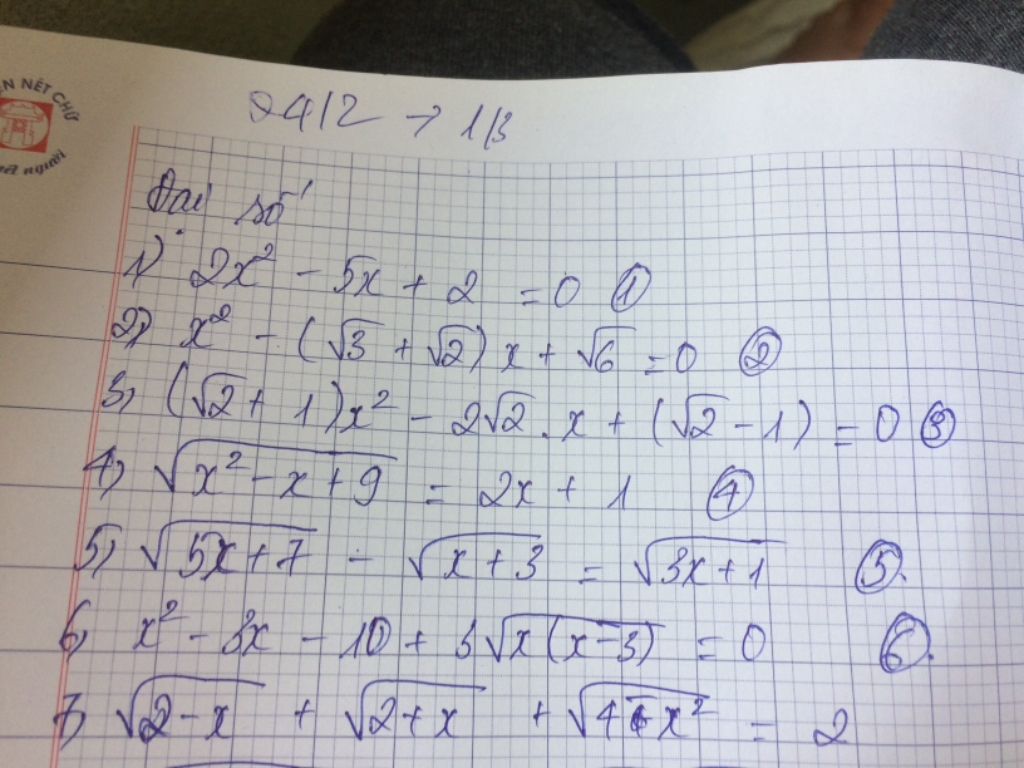 ÈN NÉT CHỮ
nết người
24/2 → 1/3
Đại số
1) 2x² - 5x + 2 = 0 ①
2) x² - (√3 + √2) x + √6 = 0 ②
3) (√2 + 1)x² - 2√2 . x + (√2 - 1) = 0 ③
4) √(x² - x + 9) = 2x + 1 ④
5) √(5x + 7) - √(x + 3) = √(3x + 1) ⑤.
6) x² - 3x - 10 + 3√(x(x - 3)) = 0 ⑥.
7) √(2 - x) + √(2 + x) + √(4 - x²) = 2